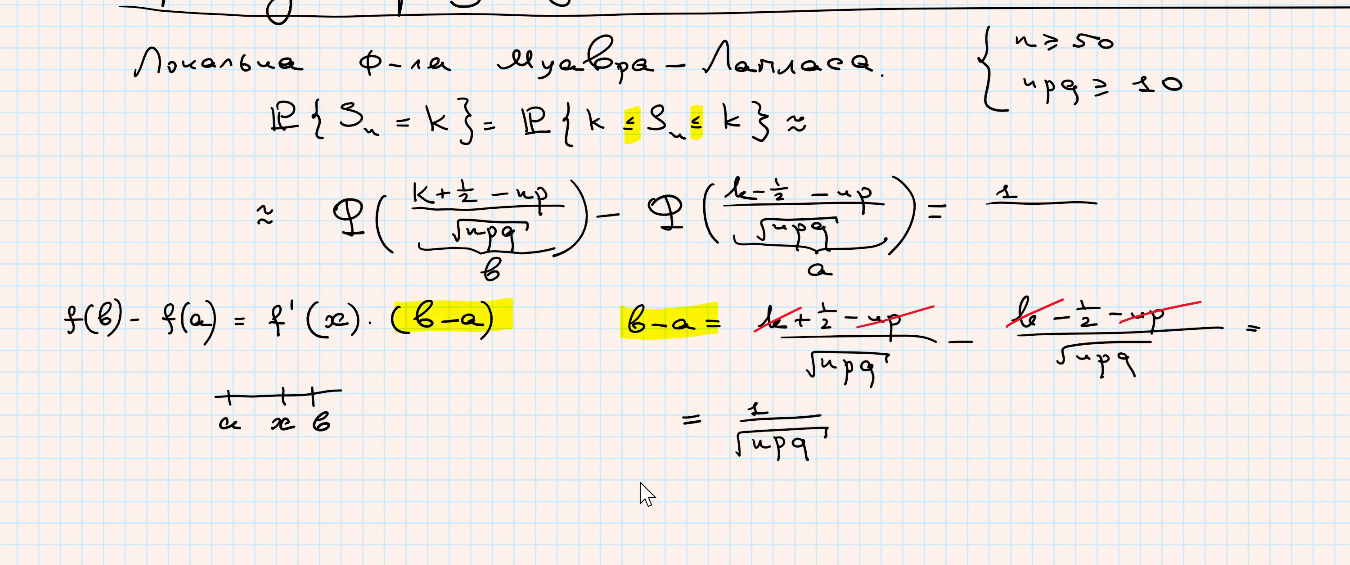 Локальна ф-ла Муавра – Лапласа.
{ n ≥ 50
npq ≥ 10
ℙ{ Sₙ = k } = ℙ{ k ≤ Sₙ ≤ k } ≈
≈ Φ( (k + 1/2 – np) / √npq ) – Φ( (k – 1/2 – np) / √npq ) = 1
в a
f(в) – f(a) = f'(x) · (в – a) в – a = (k + 1/2 – np) / √npq – (k – 1/2 – np) / √npq =
a x в
= 1 / √npq